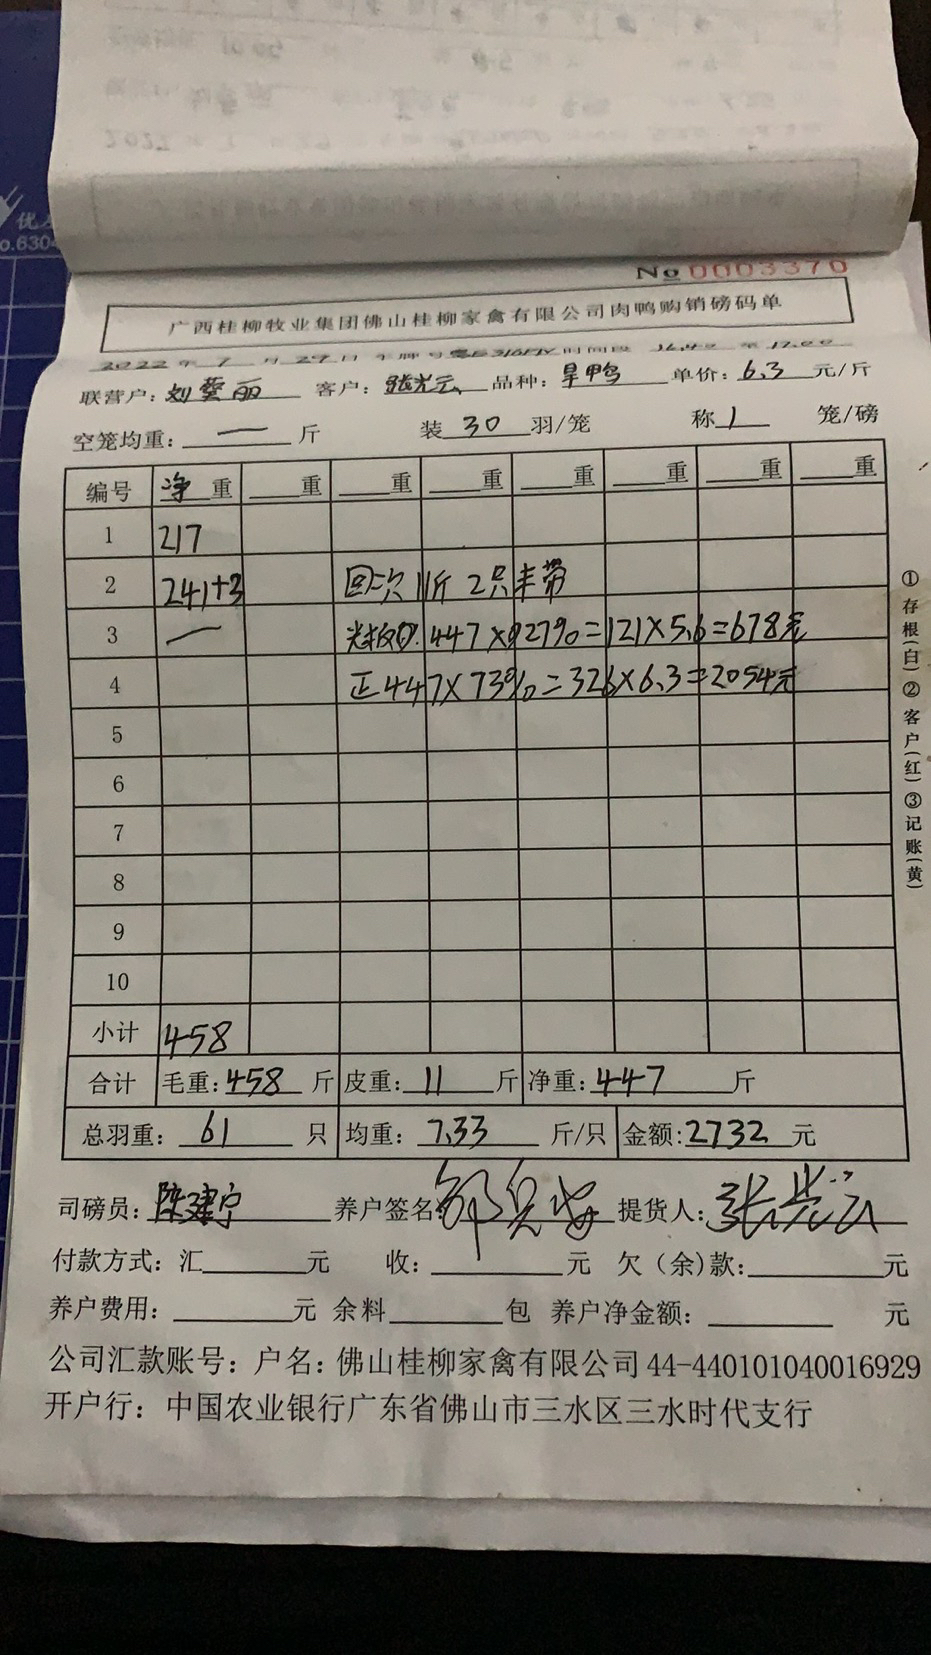 No 0003370
广西桂柳牧业集团佛山桂柳家禽有限公司肉鸭购销磅码单
2022年7月29日 车牌号 时间段 至
联营户: 刘 丽 客户: 品种: 旱鸭 单价: 6.3 元/斤
空笼均重: 一 斤 装 30 羽/笼 称 1 笼/磅
编号 净 重 重 重 重 重 重 重 重
1 217
2 241+3 回二次 11斤 2只丰带
3 一 光板 447×27%=121×5.6=678元
4 正 447×73%=326×6.3=2054元
5
6
7
8
9
10
小计 458
合计 毛重: 458 斤 皮重: 11 斤 净重: 447 斤
总羽重: 61 只 均重: 7.33 斤/只 金额: 2732 元
司磅员: 陈建宁 养户签名: 提货人: 张
付款方式: 汇 元 收: 元 欠(余)款: 元
养户费用: 元 余料 包 养户净金额: 元
公司汇款账号: 户名: 佛山桂柳家禽有限公司 44-440101040016929
开户行: 中国农业银行广东省佛山市三水区三水时代支行
①存根(白)②客户(红)③记账(黄)